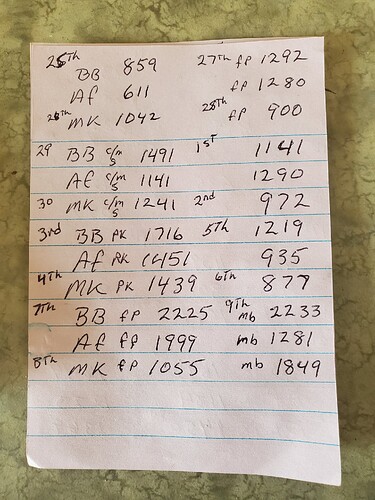 25th BB 859 27th fp 1292
Af 611 fp 1280
26th MK 1042 28th fp 900
29 BB c/m/s 1491 1st 1141
Af c/m/s 1141 1290
30 MK c/m/s 1241 2nd 972
3rd BB PK 1716 5th 1219
Af PK 1451 935
4th MK PK 1439 6th 877
7th BB fp 2225 9th mb 2233
Af fp 1999 mb 1281
8th MK fp 1055 mb 1849